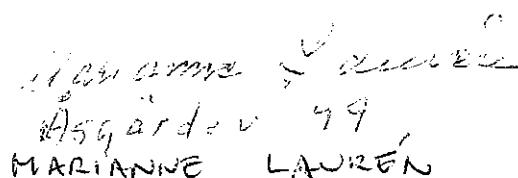 Marianne Laurén
Åsgårdsv 49
MARIANNE LAURÉN